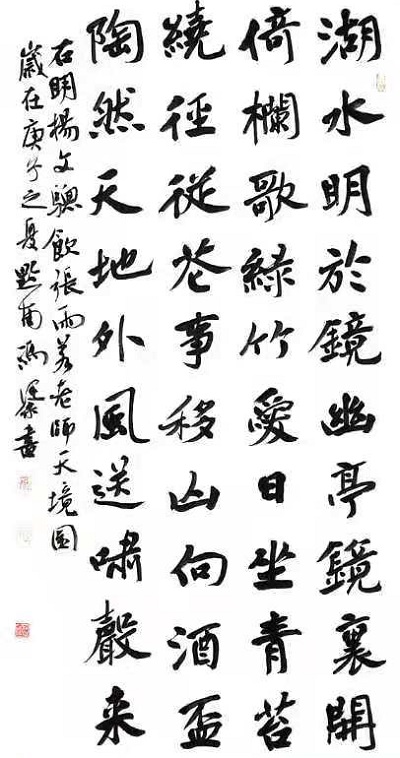 湖水明於鏡幽亭鏡裏開
倚欄歌綠竹愛日坐青苔
繞徑從花事移山向酒盃
陶然天地外風送嘯聲来
右明楊文驄飲張雨若老師天境園
歲在庚子之夏甫馮書